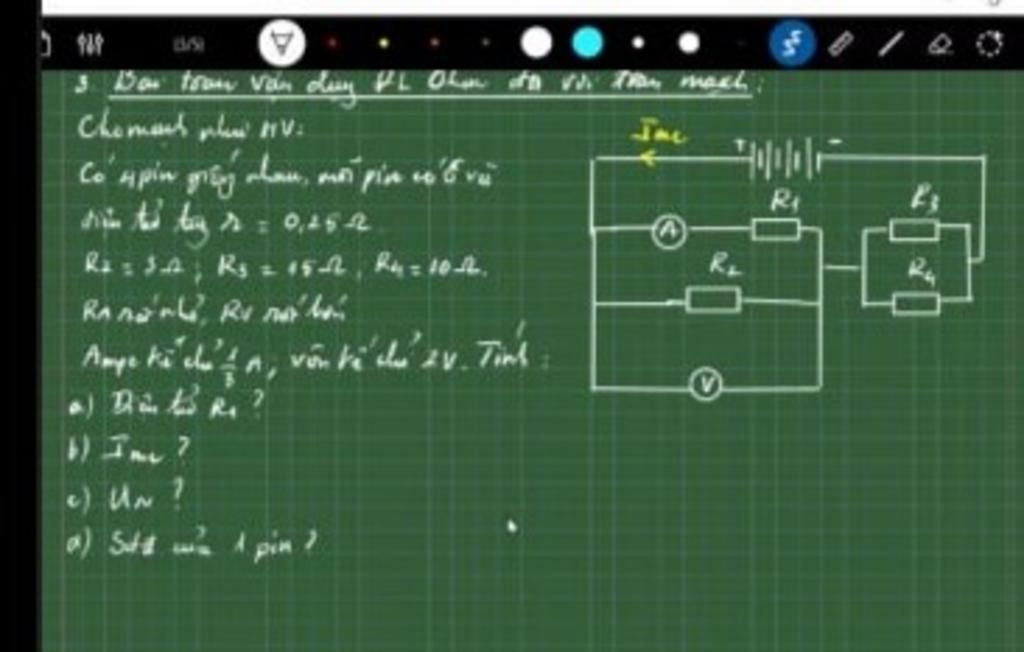 (3/5)
3. Bài toán vận dụng ĐL Ohm đối với toàn mạch:
Cho mạch như HV:
Có 4 pin giống nhau, mỗi pin có ξ và
điện trở trong r = 0,25 Ω
R₂ = 3Ω; R₃ = 15Ω, R₄ = 10Ω.
RA rất nhỏ, RV rất lớn
Ampe kế chỉ 1/3 A, vôn kế chỉ 2V. Tính:
a) Điện trở R₁?
b) Imc?
c) UN?
d) Sđđ của 1 pin?
Imc
+ -
R₁
R₃
A
R₂
R₄
V